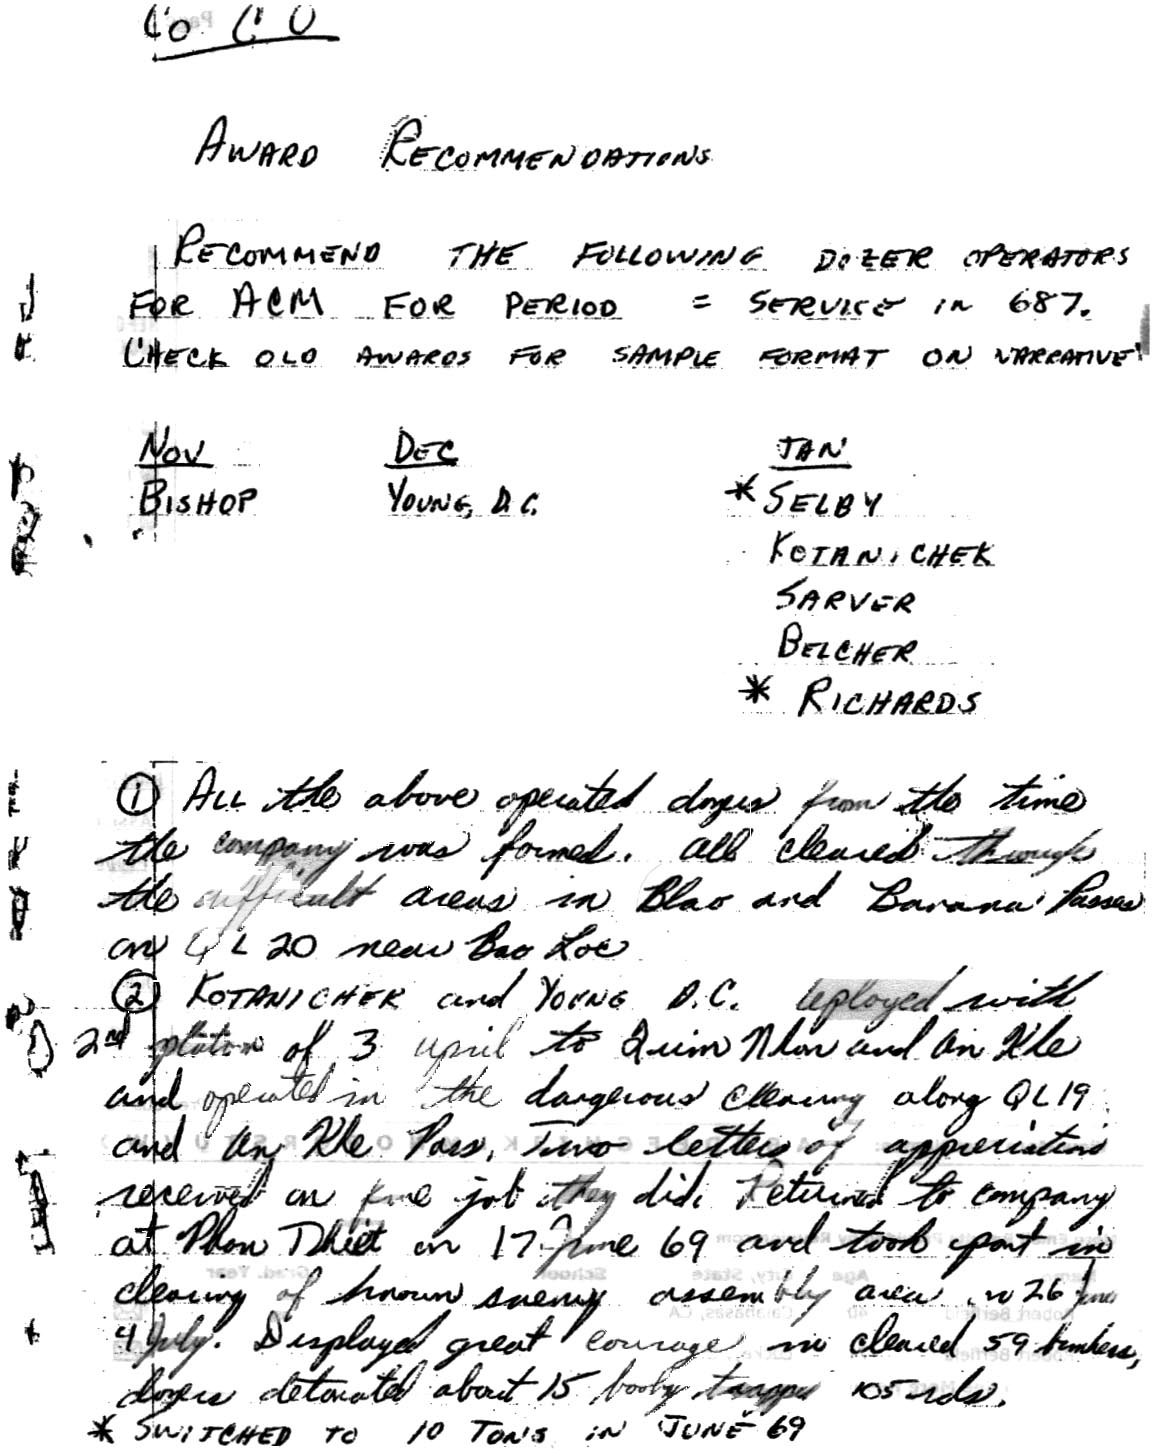 Co CO
AWARD RECOMMENDATIONS
RECOMMEND THE FOLLOWING DOZER OPERATORS
FOR ACM FOR PERIOD = SERVICE IN 687.
CHECK OLD AWARDS FOR SAMPLE FORMAT ON NARRATIVE
NOV DEC JAN
BISHOP YOUNG, D.C. * SELBY
KOTANICHEK
SARVER
BELCHER
* RICHARDS
① ALL the above operated dozers from the time
the company was formed. All cleared through
the difficult areas in Blao and Banana Passes
on QL 20 near Bao Loc
② KOTANICHEK and YOUNG D.C. deployed with
2nd platoon of 3 april to Quin Nhon and An Khe
and operated in the dangerous clearing along QL 19
and An Khe Pass. Two letters of appreciation
received on fine job they did. Returned to company
at Phan Thiet on 17 June 69 and took part in
clearing of known enemy assembly area in 26 June
4 July. Displayed great courage in cleared 59 bunkers,
dozers detonated about 15 booby trapped 105 rds.
* SWITCHED TO 10 TONS IN JUNE 69